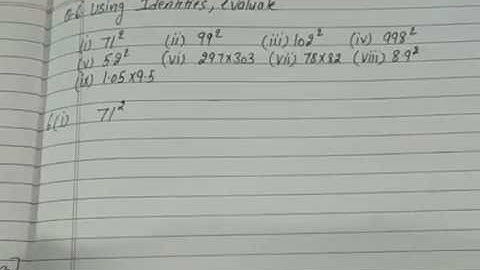 Q.6 Using Identities, evaluate
(i) 71² (ii) 99² (iii) 102² (iv) 998²
(v) 5.2² (vi) 297×303 (vii) 78×82 (viii) 8.9²
(ix) 1.05×9.5
6(i) 71²